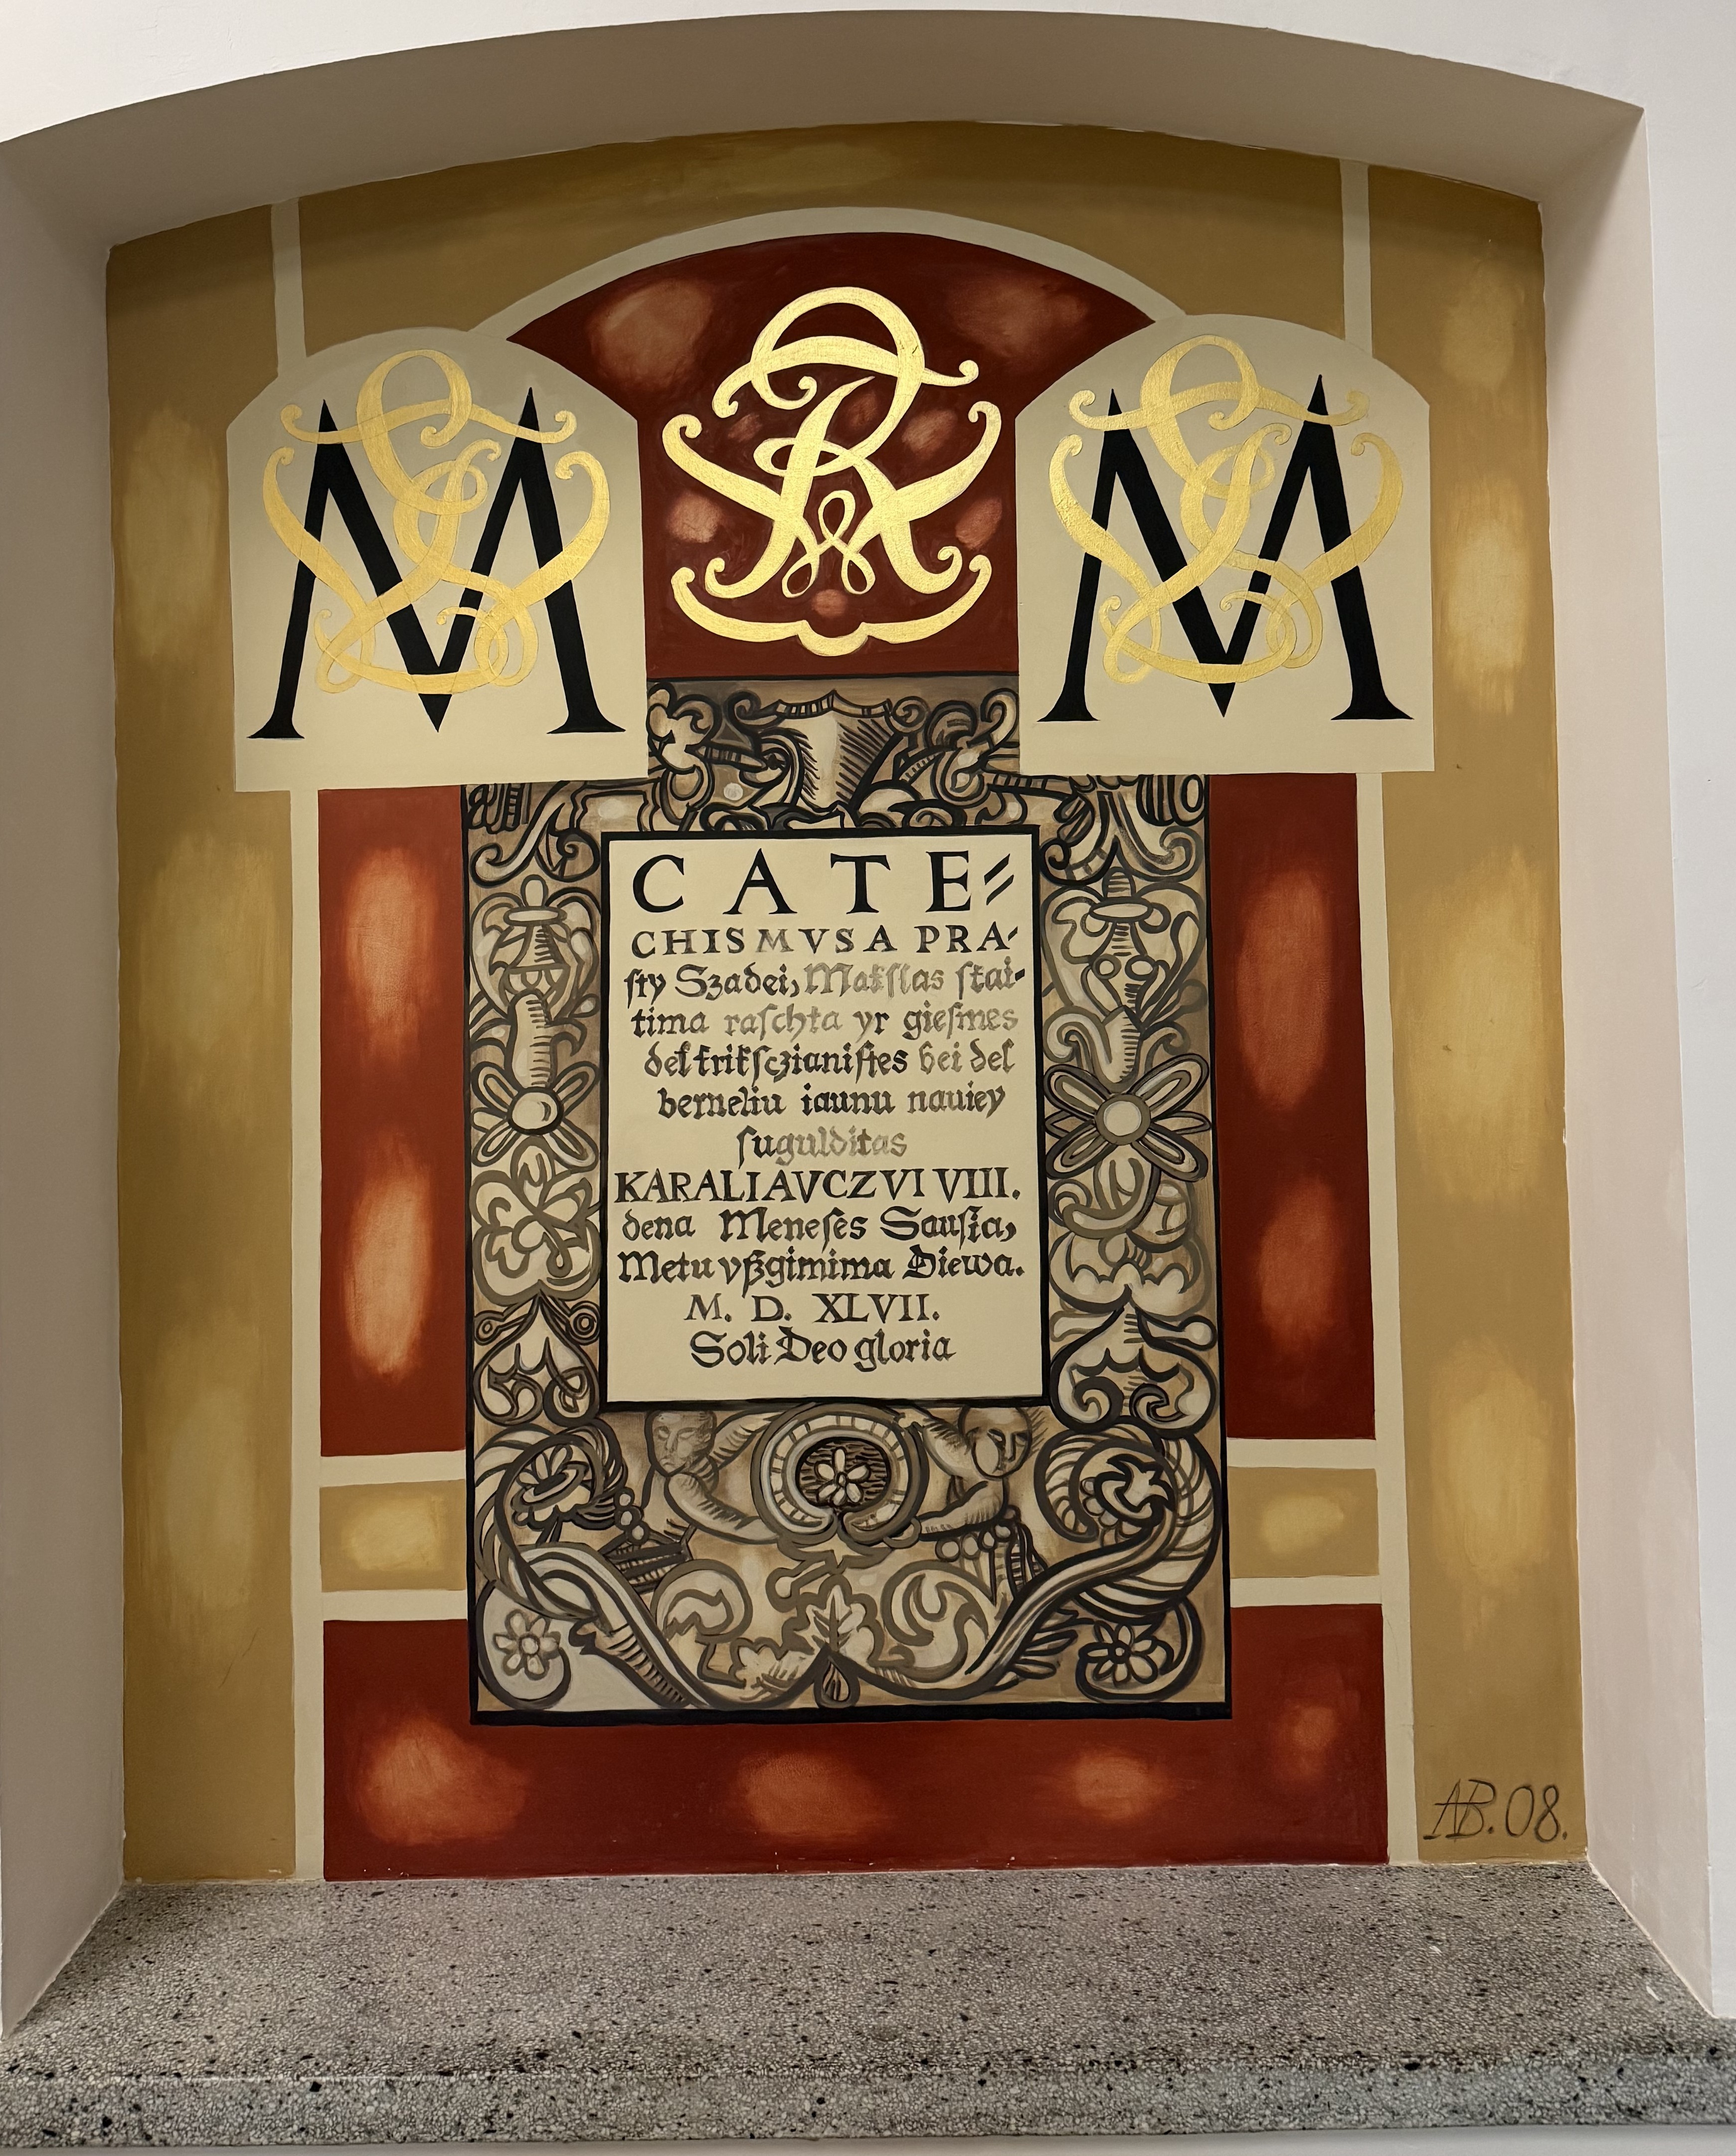 M
M
CATE⸗
CHISMVSA PRA-
ſty Szadei, Makſlas ſkai-
tima raſchta yr gieſmes
del krikſczianiſtes bei del
berneliu iaunu nauiey
ſugulditas
KARALIAVCZVI VIII.
dena Meneſes Sauſia,
Metu vßgimima Diewa.
M. D. XLVII.
Soli Deo gloria
AB.08.